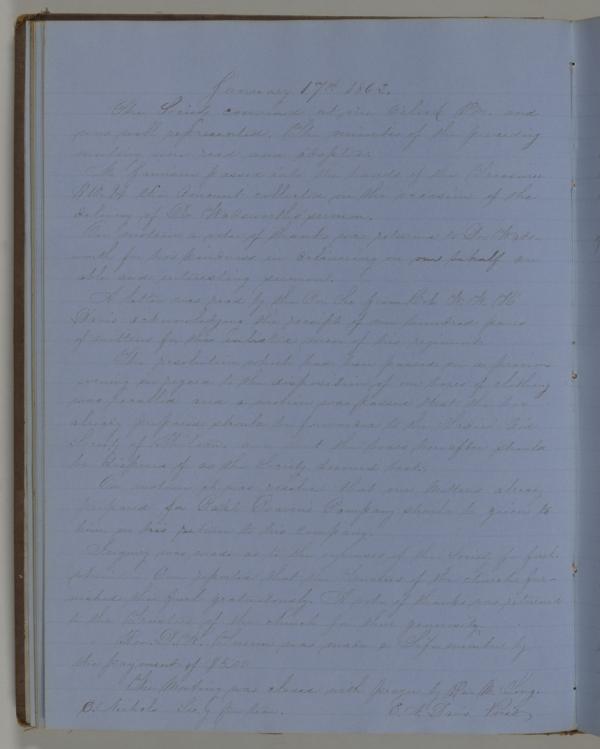 January 17th 1863.
The Society convened at five o'clock P.M. and
was well represented. The minutes of the preceding
meeting were read and adopted.
passed into the hands of the Treasurer
the amount collected on the occasion of the
delivery of Dr. Wadsworth's sermon.
On motion a vote of thanks was returned to Dr. Wads-
worth for his kindness in delivering on our behalf an
able and interesting sermon.
A letter was read by the Cor. Sec. from Col. W. W. H.
Davis acknowledging the receipt of one hundred pairs
of mittens for the enlisted men of his regiment.
The resolution which had been passed on a previous
evening in regard to the disposition of our boxes of clothing
was recalled and a motion was passed that the box
already prepared should be forwarded to the Ladies Aid
Society of and that the boxes hereafter should
be disposed of as the Society deemed best.
On motion it was resolved that our mittens already
prepared for Capt. Company should be given to
him on his return to his company.
Inquiry was made as to the expenses of the Society for fuel
reported that the Trustees of the church fur-
nished their fuel gratuitously. A vote of thanks was returned
to the Trustees of the church for their generosity.
was made a Life member by
the payment of $5.00
The Meeting was closed with prayer by Rev. M. Long.
Nichols Sec'y pro tem. Davis Pres.